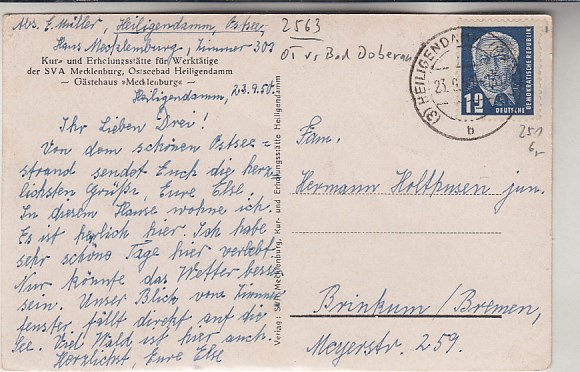 Abs. E. Müller, Heiligendamm, Ostsee,
Haus Mecklenburg, Zimmer 303
Kur- und Erholungsstätte für Werktätige
der SVA Mecklenburg, Ostseebad Heiligendamm
– Gästehaus »Mecklenburg« –
Heiligendamm, 23.9.50.
Ihr Lieben Drei!
Von dem schönen Ostsee-
strand sendet Euch die herz-
lichsten Grüße, Eure Else.
In diesem Hause wohne ich.
Es ist herrlich hier. Ich habe
sehr schöne Tage hier verlebt.
Nur könnte das Wetter besser
sein. Unser Blick vom Zimmer-
fenster fällt direkt auf die
See. Viel Wald ist hier auch.
Herzlichst, Eure Else
Verlag: SVA Mecklenburg, Kur- und Erholungsstätte Heiligendamm
2563
OT v Bad Doberan
(3) HEILIGENDA
23.9.
b
12
DEUTSCHE
DEMOKRATISCHE REPUBLIK
251
6,-
Fam.
Hermann Holthusen jun.
Brinkum/Bremen,
Meyerstr. 259.